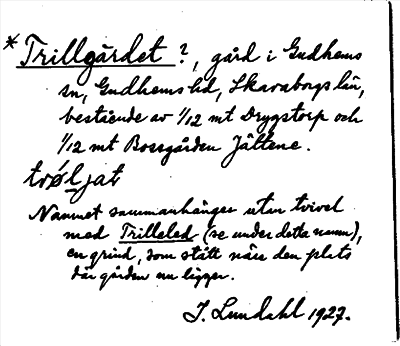 *Trillgärdet ?, gård i Gudhems
sn, Gudhems hd, Skaraborgs län,
bestående av 1/12 mt Drygstorp och
1/12 mt Bossgården Jättene.
trøljat
Namnet sammanhänger utan tvivel
med Trilleled (se under detta namn),
en grind, som stått nära den plats
där gården nu ligger.
J. Lundahl 1927.